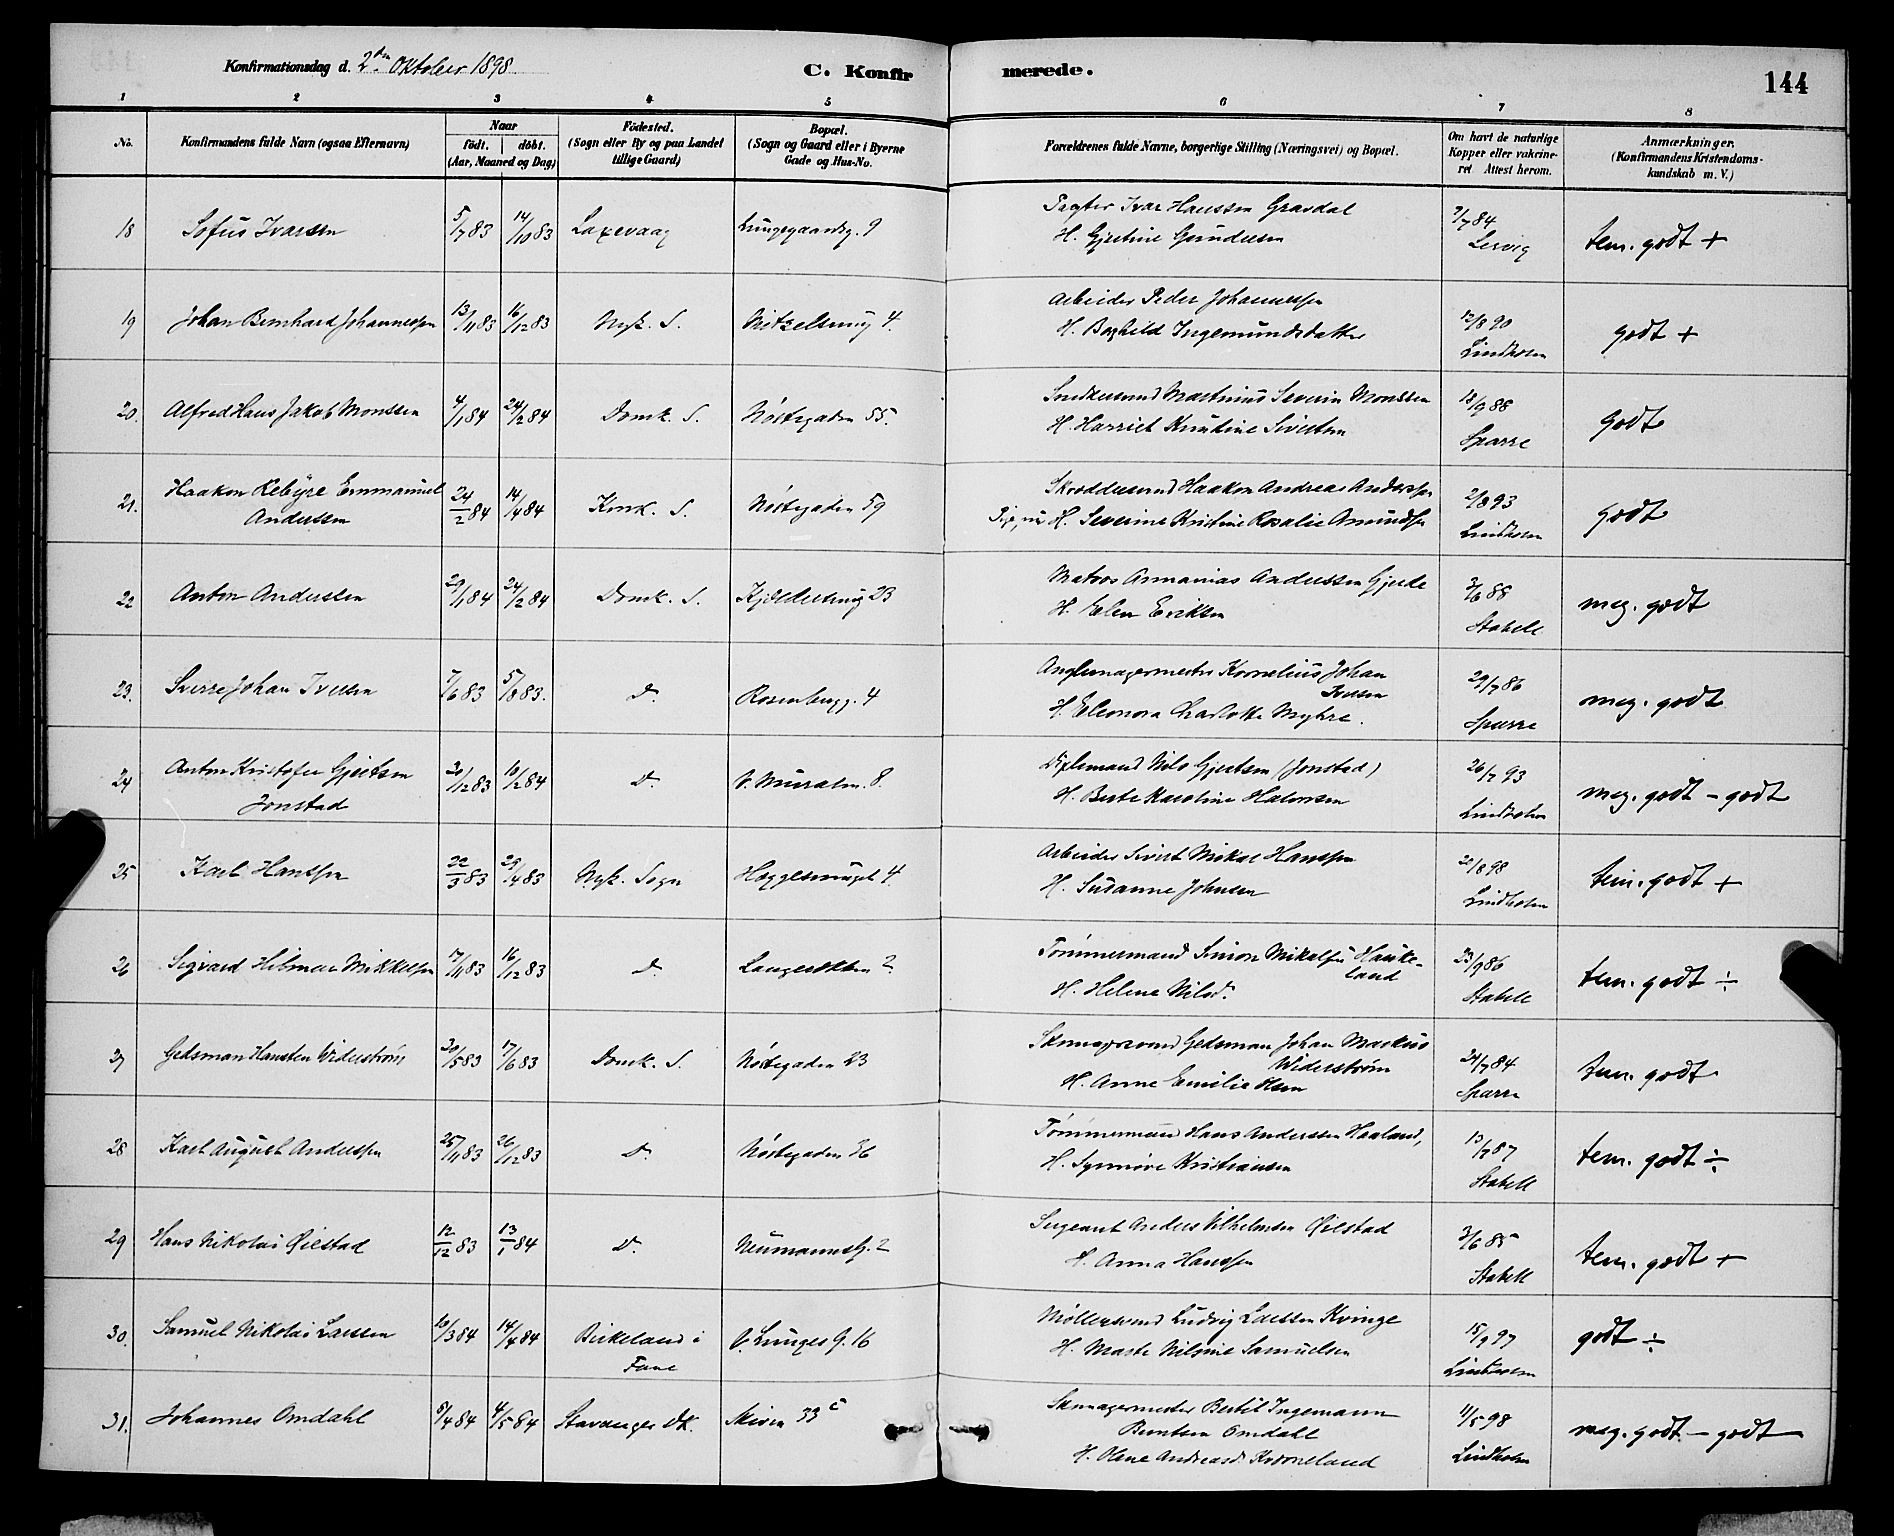 Konfirmationsdag d. 2den Oktober 1898
C. Konfirmerede.
144
1 2 3 4 5 6 7 8
No.
Konfirmandens fulde Navn (ogsaa Efternavn)
Naar
födt. | döbt.
(Aar, Maaned og Dag)
Födested.
(Sogn eller By og paa Landet
tillige Gaard)
Bopæl.
(Sogn og Gaard eller i Byerne
Gade og Hus-No.
Forældrenes fulde Navne, borgerlige Stilling (Næringsvei) og Bopæl.
Om havt de naturlige
Kopper eller vakcine-
ret Attest herom.
Anmærkninger.
(Konfirmandens Kristendoms-
kundskab m. V.)
18 Sofus Ivarsen 5/7 83 14/10 83 Laxevaag Lungegaardsg. 9
Pagter Ivar Hanssen Gravdal
H. Gjertine Gundersen
9/7 84
Lervig
tem. godt +
19 Johan Bernhard Johannessen 13/11 83 16/12 83 Nyk. S. Nitzelsmug 4.
Arbeider Peder Johannessen
H. Borghild Ingemundsdatter
12/8 90
Lindholm
godt +
20. Alfred Hans Jakob Monssen 4/1 84 24/2 84 Domk. S. Nöstegaden 55.
Snedkersvend Martinius Severin Monssen
H. Harriet Kristine Sivertsen
18/9 88
Sparre
godt
21. Haakon Rebyre Emmanuel
Andersen
24/2 84 14/4 84 Korsk. S. Nöstegaden 59
Skræddersvend Haakon Andreas Andersen
H. Severine Kristine Rosalie Amundsen
2/8 93
Lindholm
godt
22 Anton Andersen 29/1 84 24/2 84 Domk. S. Kjeldersmug 23
Matros Annanias Andersen Gjerde
H. Elen Eriksen
3/6 88
Stabell
meg. godt
23. Sverre Johan Iversen 7/6 83 5/8 83. D. Rosenbergg. 4
Anglemagermester Kornelius Johan
Iversen
H. Eleonora Charlotte Myhre.
29/7 86
Sparre
meg. godt
24 Anton Kristofer Gjertsen
Jonstad
30/12 83 10/2 84 D. V. Muralm. 8.
Dixlemand Nils Gjertsen (Jonstad)
H. Berte Karoline Halvorsen
26/7 93
Lindholm
meg. godt - godt
25 Karl Hanssen 22/3 83 29/4 83 Nyk. Sogn Heggesmuget 4.
Arbeider Sivert Mikal Hanssen
H. Susanne Johnsen
20/8 98
Lindholm
tem. godt +
26 Sigvard Hilmar Mikkelsen 17/11 83 16/12 83 D. Langerækken 2
Tømmermand Simon Mikalsen Hauke-
land
H. Helene Nilsd.
23/9 86
Stabell
tem. godt ÷
27 Gedsman Hansten Widerström 30/5 83 17/6 83 Domk. S. Nöstegaden 23
Skomagersvend Gedsman Johan Markus
Widerström
H. Anne Emilie Olsen
24/7 84
Sparre
tem. godt
28 Karl August Andersen 25/11 83 26/12 83 D. Nöstegaden 36
Tømmermand Hans Andersen Haaland,
H. Synnöve Kristiansen
13/7 87
Stabell
tem. godt ÷
29 Hans Nikolai Öilstad 12/12 83 13/1 84 D. Neumannsg. 2
Sergeant Anders Vilhelmsen Öilstad
H. Anna Hanssen
3/6 85
Stabell
tem. godt +
30. Samuel Nikolai Larssen 10/3 84 14/4 84 Birkeland i
Fane
V. Lunges G. 16
Möllersvend Ludvig Larssen Kvinge
H. Marte Nilsine Samuelsen
15/9 97
Lindholm
godt ÷
31. Johannes Omdahl 8/4 84 4/5 84 Stavanger Dk. Skiven 33c
Skomagermester Bertil Ingemann
Berntsen Omdahl
H. Olene Andreasd. Kroneland
11/5 98
Lindholm
meg. godt - godt